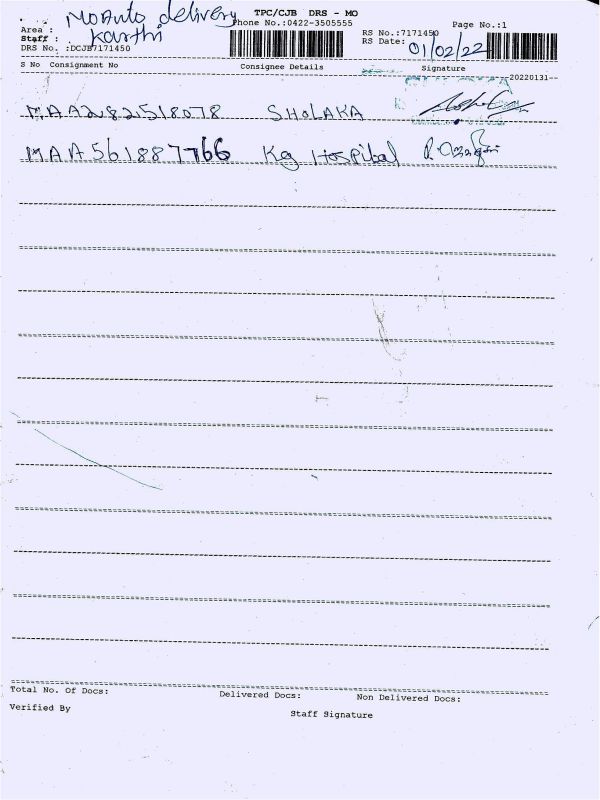 MoAuto delivery
TPC/CJB DRS - MO
Area :
Phone No.:0422-3505555
Page No.:1
Staff : Karthi
RS No.:7171450
DRS No. :DCJB7171450
RS Date: 01/02/22
S No Consignment No Consignee Details Signature
--20220131--
MAA282518078 SHOLAKA
MAA561887766 Kg Hospital
Total No. Of Docs: Delivered Docs: Non Delivered Docs:
Verified By Staff Signature